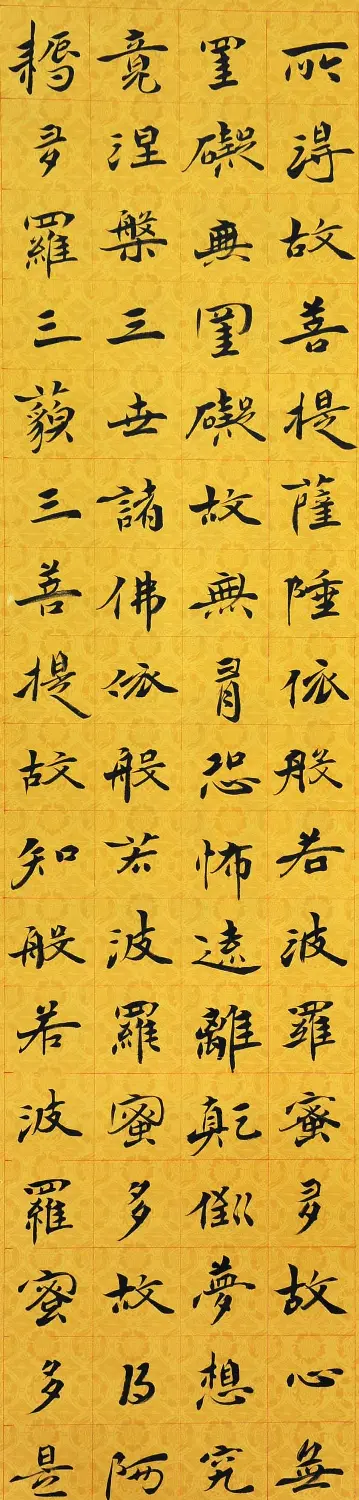 所得故菩提薩埵依般若波羅蜜多故心無
罣礙無罣礙故無有恐怖遠離顛倒夢想究
竟涅槃三世諸佛依般若波羅蜜多故得阿
耨多羅三藐三菩提故知般若波羅蜜多是